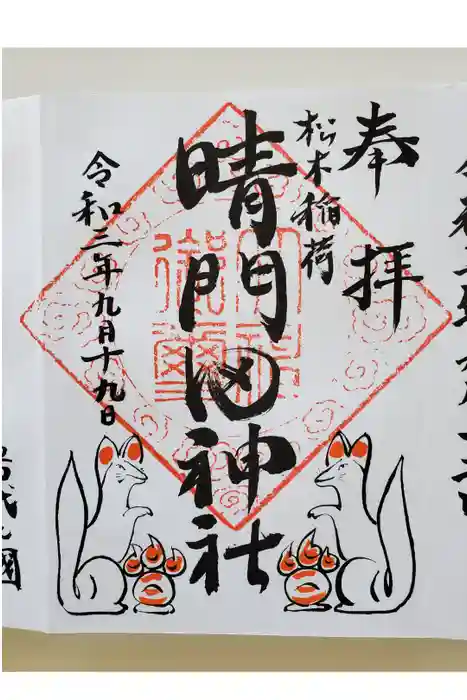 奉拝
松木稲荷
晴門田神社
令和三年九月十九日